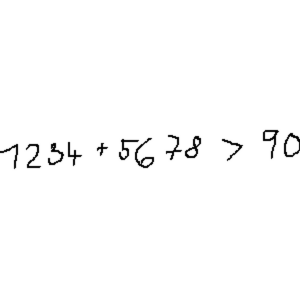 1234 + 5678 > 90